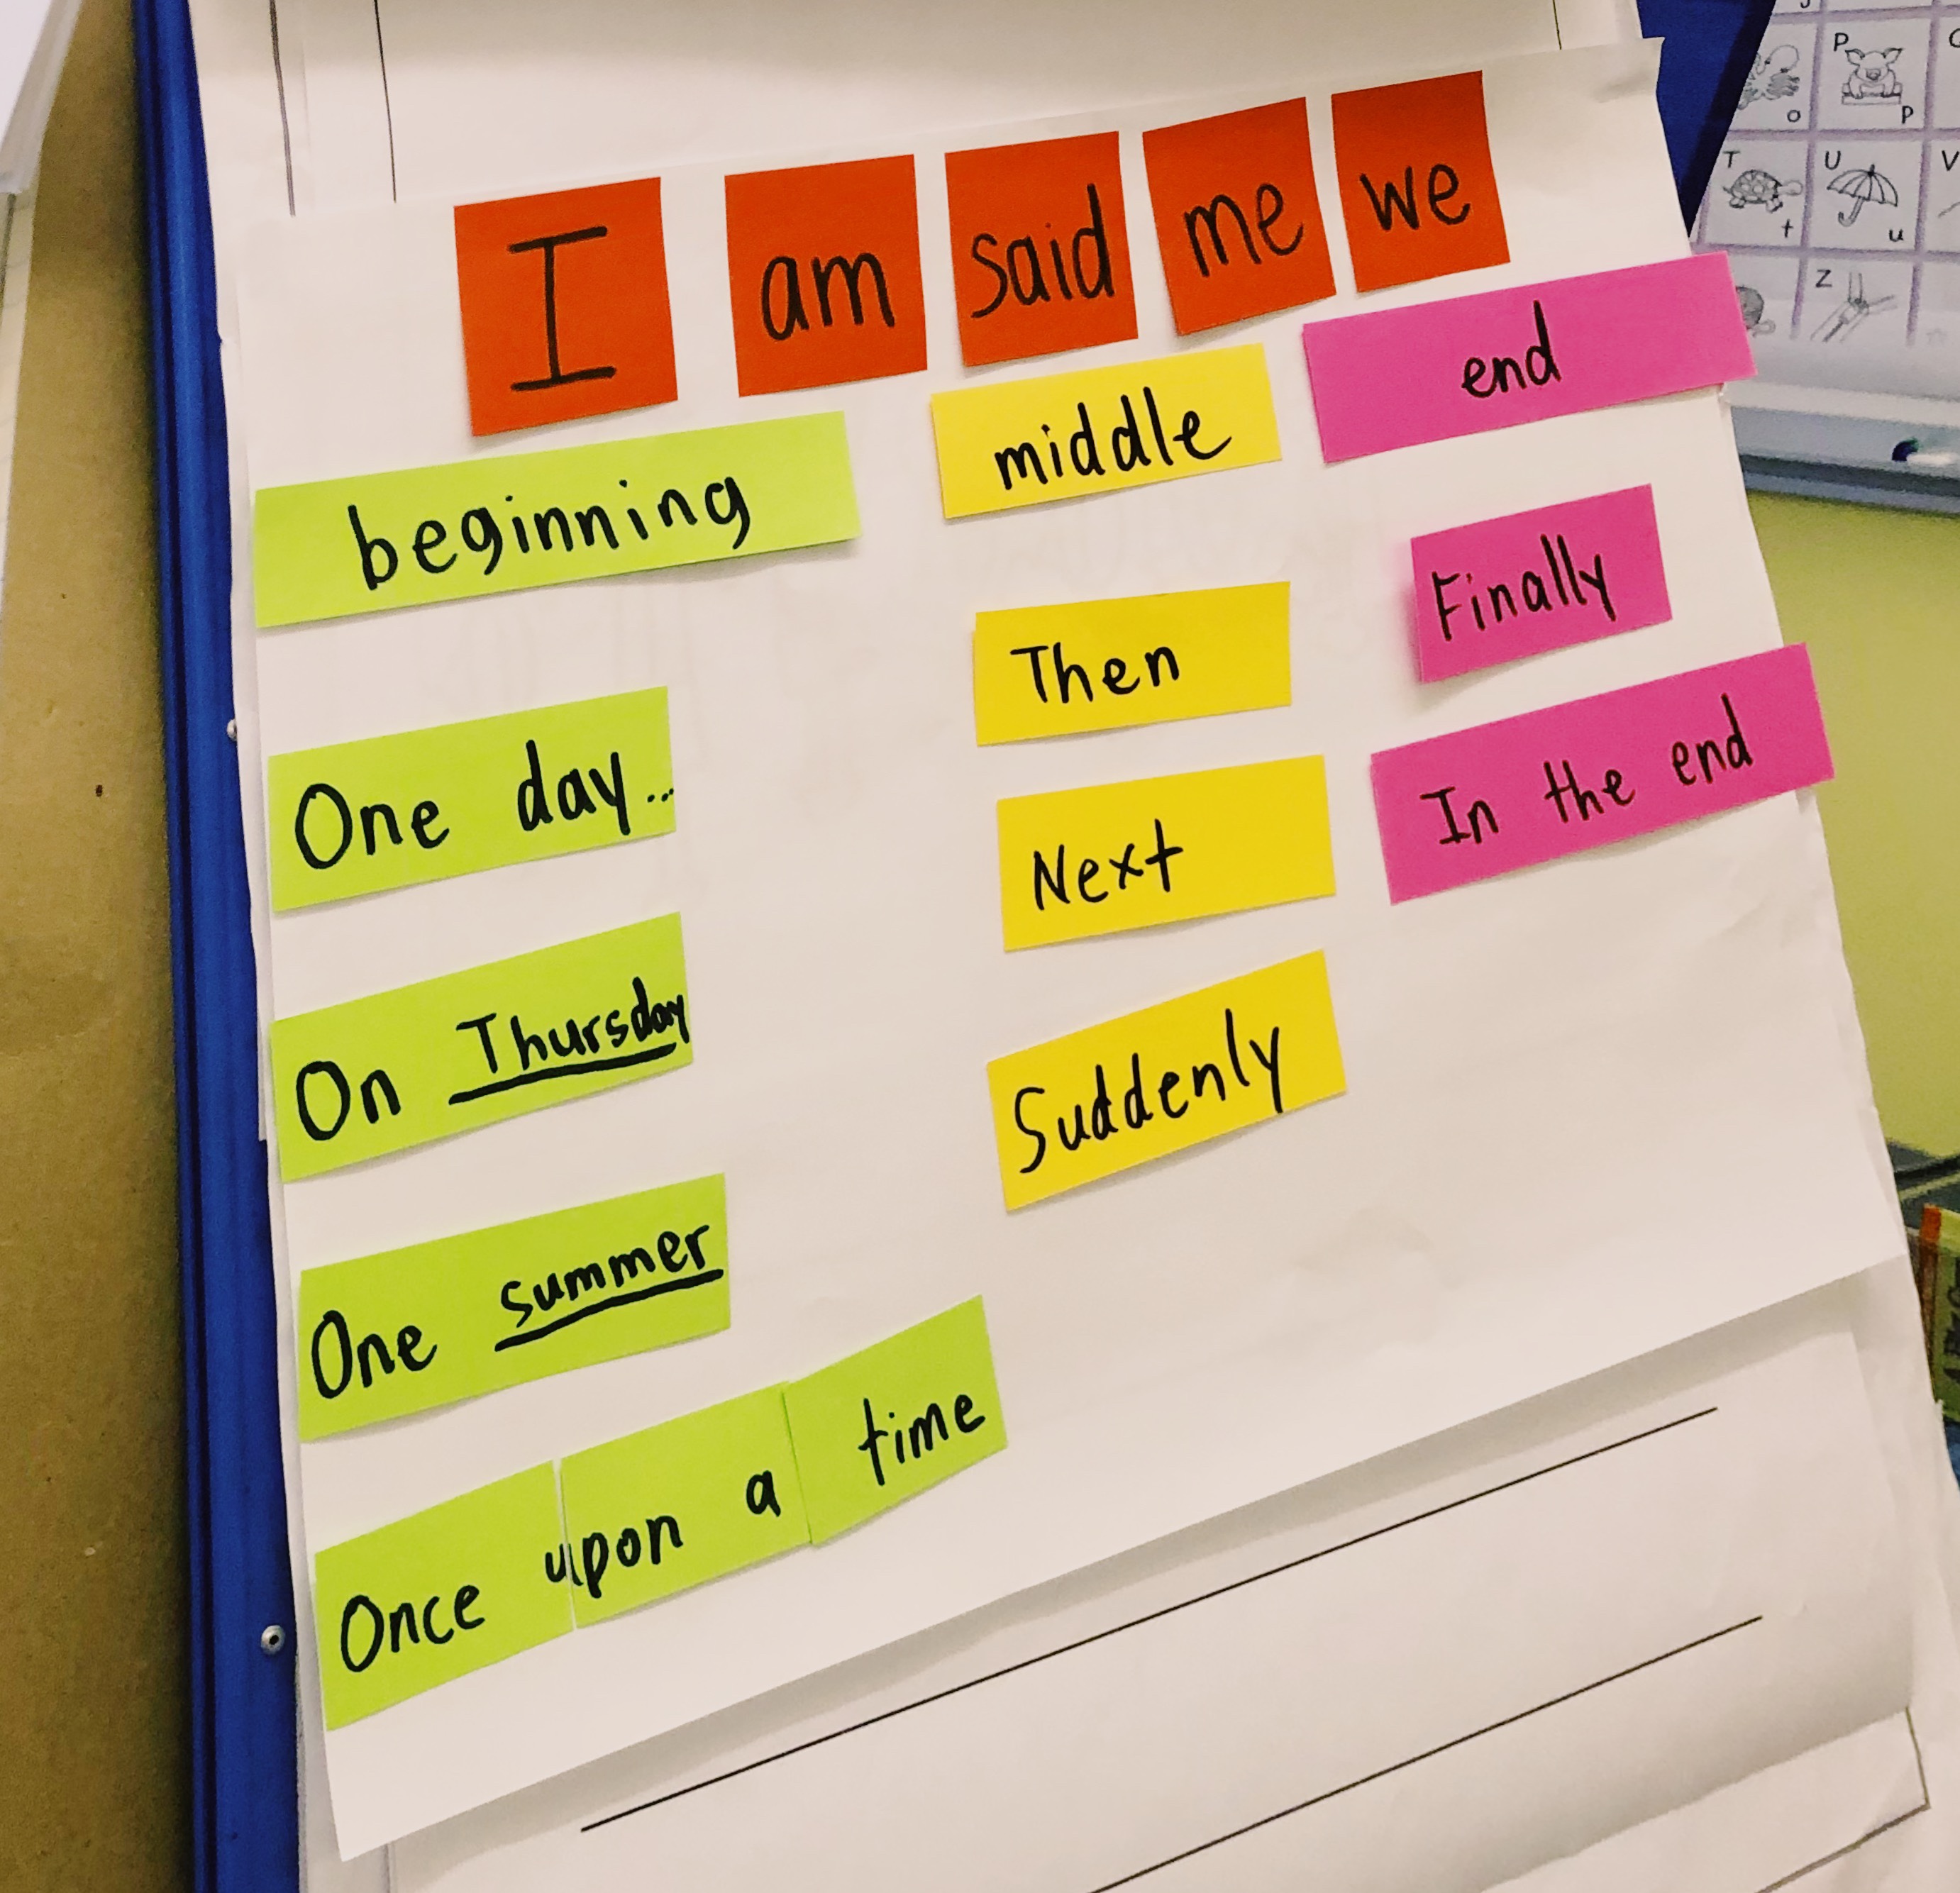 I am said me we
beginning middle end
One day...
On Thursday
One summer
Once upon a time
Then
Next
Suddenly
Finally
In the end
o
P p
T t
U u
V
Z